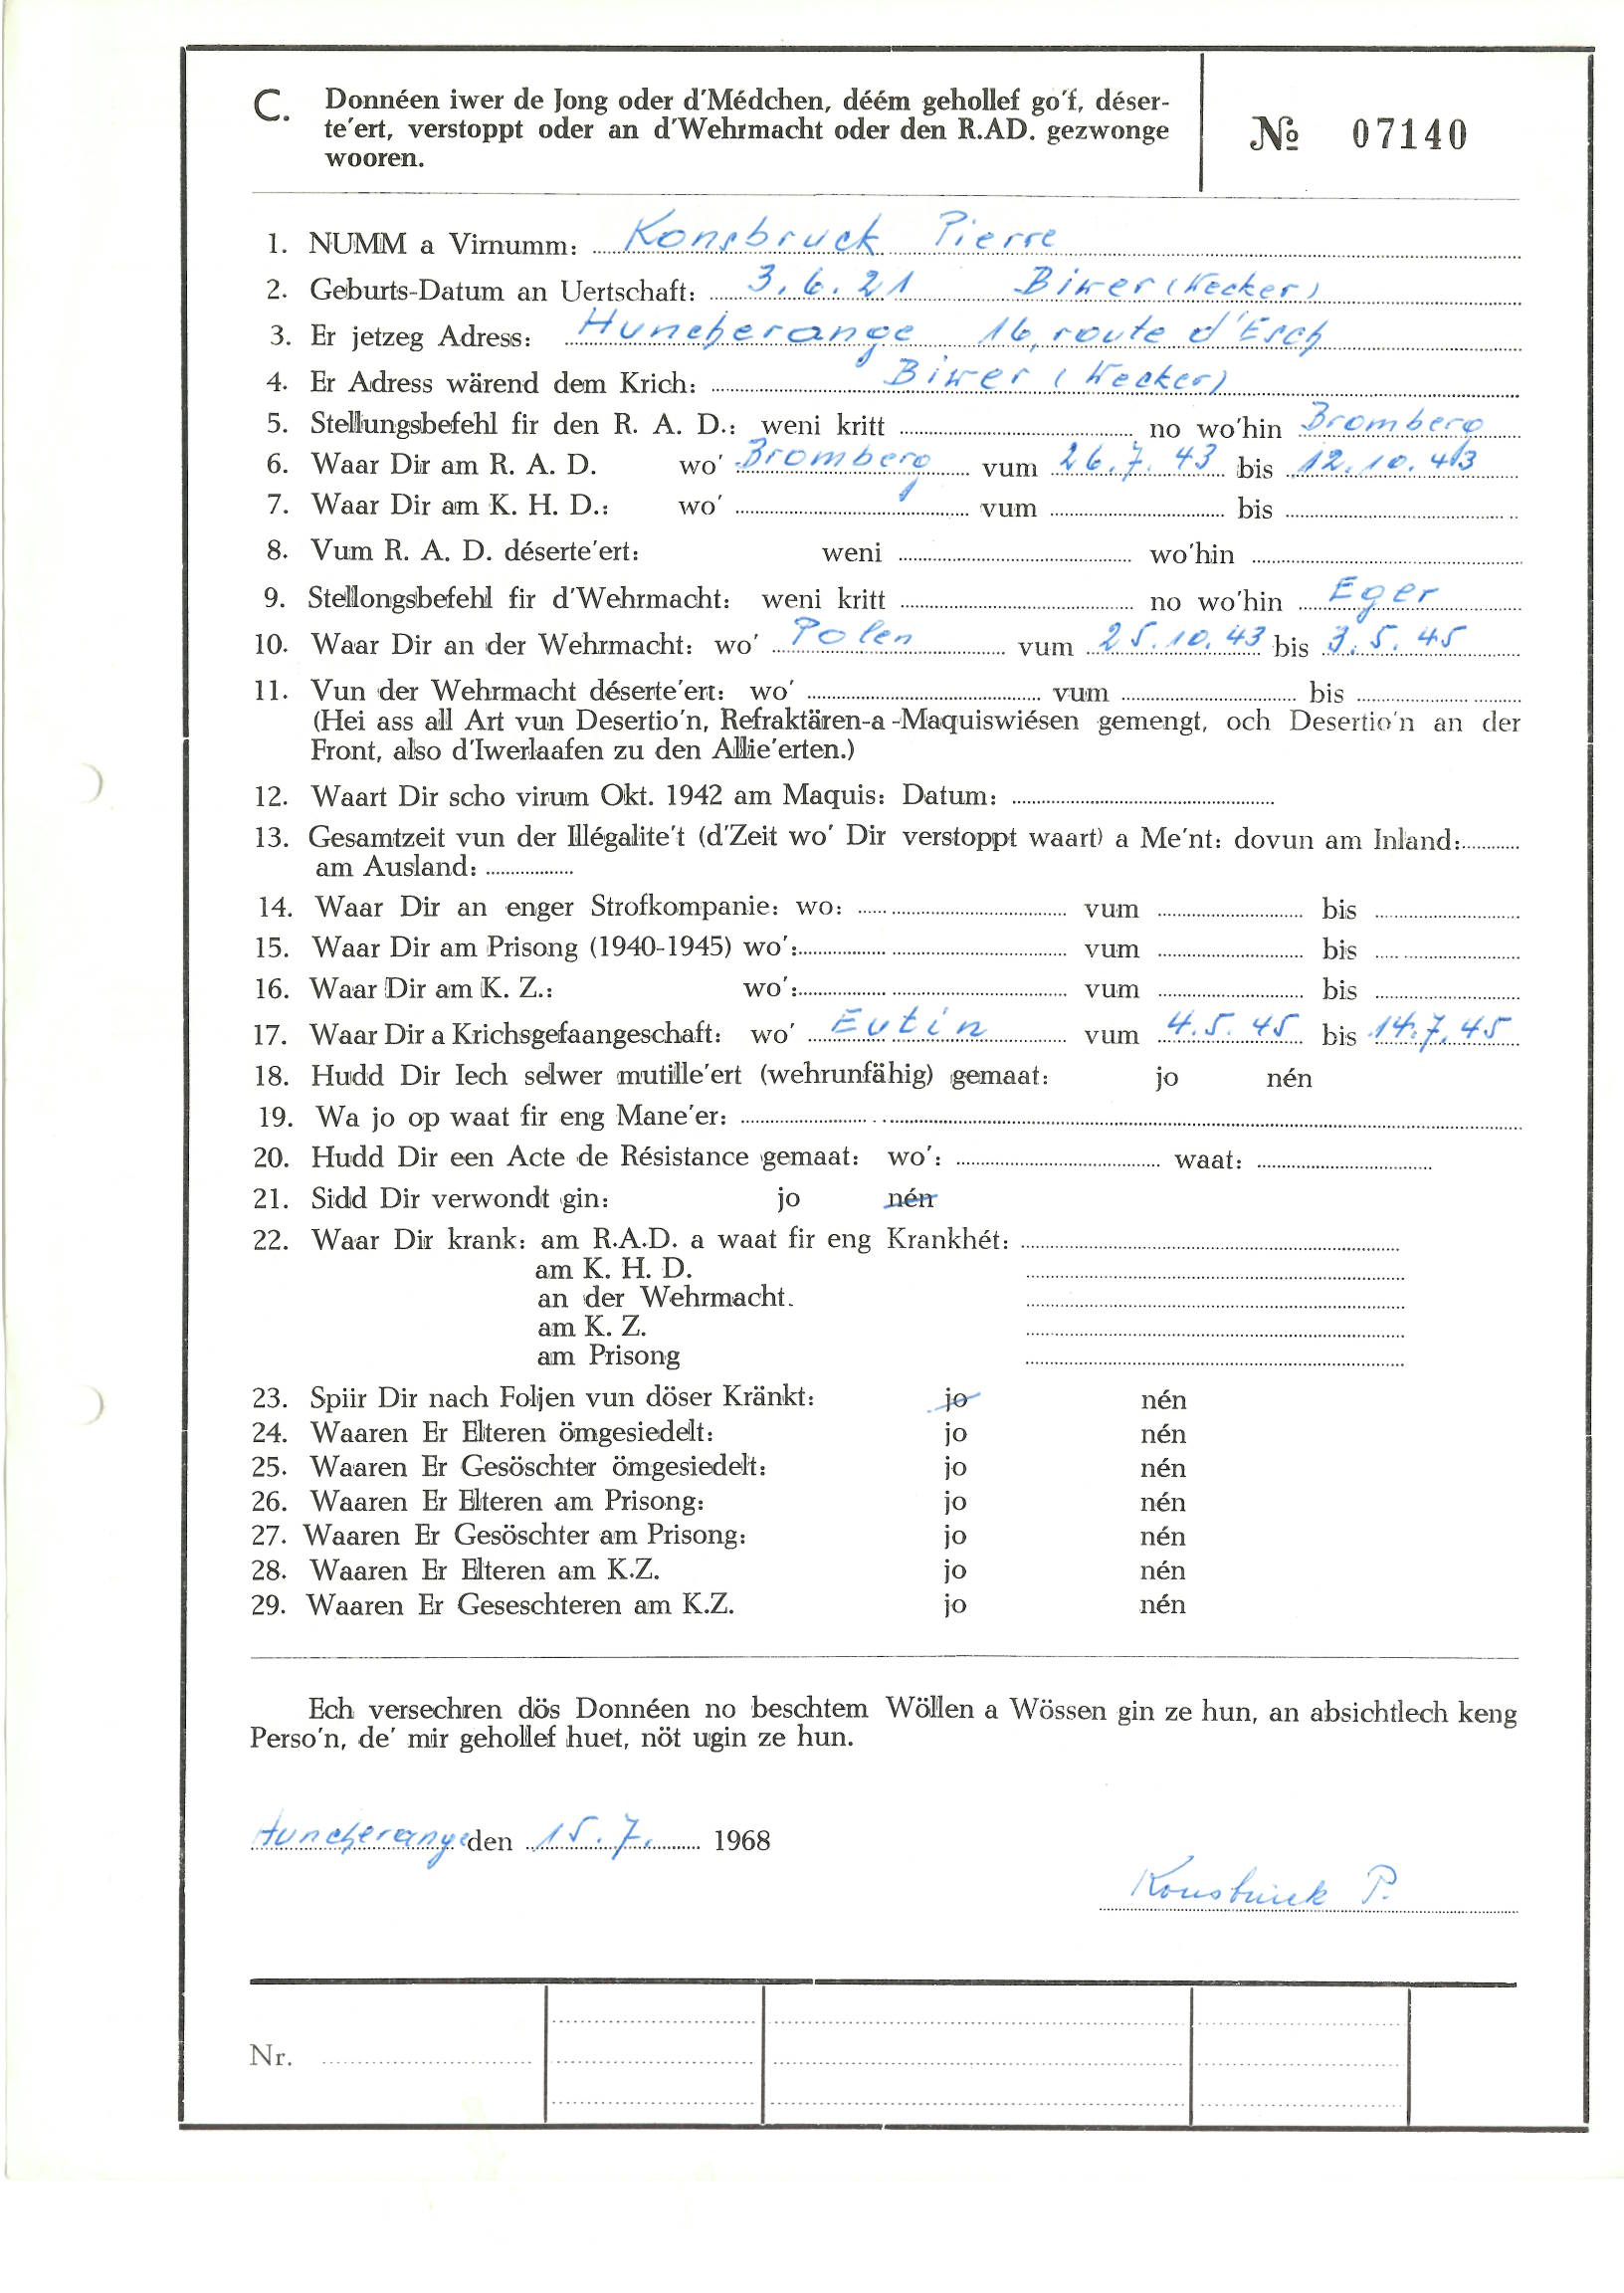 C. Donnéen iwer de Jong oder d'Médchen, déém gehollef go'f, déser-
te'ert, verstoppt oder an d'Wehrmacht oder den R.AD. gezwonge
wooren.
№ 07140
1. NUMM a Virnumm: Konsbruck Pierre
2. Geburts-Datum an Uertschaft: 3.6.21 Biwer (Wecker)
3. Er jetzeg Adress: Huncherange 16, route d'Esch
4. Er Adress wärend dem Krich: Biwer (Wecker)
5. Stellungsbefehl fir den R. A. D.: weni kritt no wo'hin Bromberg
6. Waar Dir am R. A. D. wo' Bromberg vum 26.7.43 bis 12.10.43
7. Waar Dir am K. H. D.: wo' vum bis
8. Vum R. A. D. déserte'ert: weni wo'hin
9. Stellongsbefehl fir d'Wehrmacht: weni kritt no wo'hin Eger
10. Waar Dir an der Wehrmacht: wo' Polen vum 25.10.43 bis 3.5.45
11. Vun der Wehrmacht déserte'ert: wo' vum bis
(Hei ass all Art vun Desertio'n, Refraktären-a-Maquiswiésen gemengt, och Desertio'n an der
Front, also d'Iwerlaafen zu den Allie'erten.)
12. Waart Dir scho virum Okt. 1942 am Maquis: Datum:
13. Gesamtzeit vun der Illégalite't (d'Zeit wo' Dir verstoppt waart) a Me'nt: dovun am Inland:
am Ausland:
14. Waar Dir an enger Strofkompanie: wo: vum bis
15. Waar Dir am Prisong (1940-1945) wo': vum bis
16. Waar Dir am K. Z.: wo': vum bis
17. Waar Dir a Krichsgefaangeschaft: wo' Eutin vum 4.5.45 bis 14.7.45
18. Hudd Dir Iech selwer mutille'ert (wehrunfähig) gemaat: jo nén
19. Wa jo op waat fir eng Mane'er:
20. Hudd Dir een Acte de Résistance gemaat: wo': waat:
21. Sidd Dir verwondt gin: jo nén
22. Waar Dir krank: am R.A.D. a waat fir eng Krankhét:
am K. H. D.
an der Wehrmacht.
am K. Z.
am Prisong
23. Spiir Dir nach Foljen vun döser Kränkt: jo nén
24. Waaren Er Elteren ömgesiedelt: jo nén
25. Waaren Er Gesöschter ömgesiedelt: jo nén
26. Waaren Er Elteren am Prisong: jo nén
27. Waaren Er Gesöschter am Prisong: jo nén
28. Waaren Er Elteren am K.Z. jo nén
29. Waaren Er Geseschteren am K.Z. jo nén
Ech versechren dös Donnéen no beschtem Wöllen a Wössen gin ze hun, an absichtlech keng
Perso'n, de' mir gehollef huet, nöt ugin ze hun.
Huncherange den 15.7. 1968
Konsbruck P.
Nr.